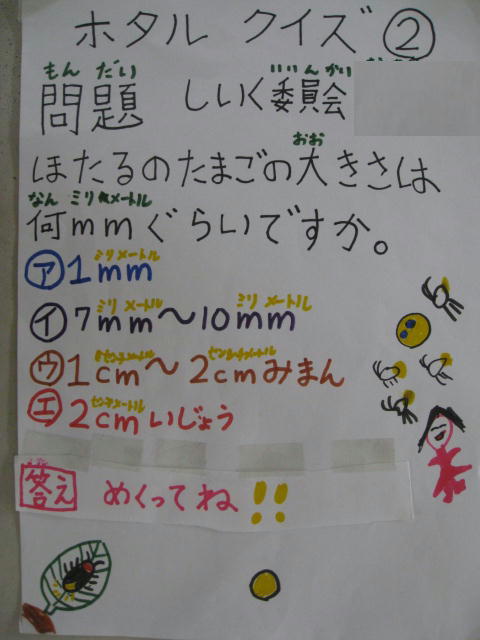 ホタル クイズ ②
もん だい いいんかい
問題 しいく委員会
おお
ほたるのたまごの大きさは
なん ミリメートル
何mmぐらいですか。
ミリメートル
㋐1mm
ミリ メートル ミリ メートル
㋑7mm〜10mm
センチメートル センチメートル
㋒1cm〜2cmみまん
センチメートル
㋓2cmいじょう
答え めくってね!!